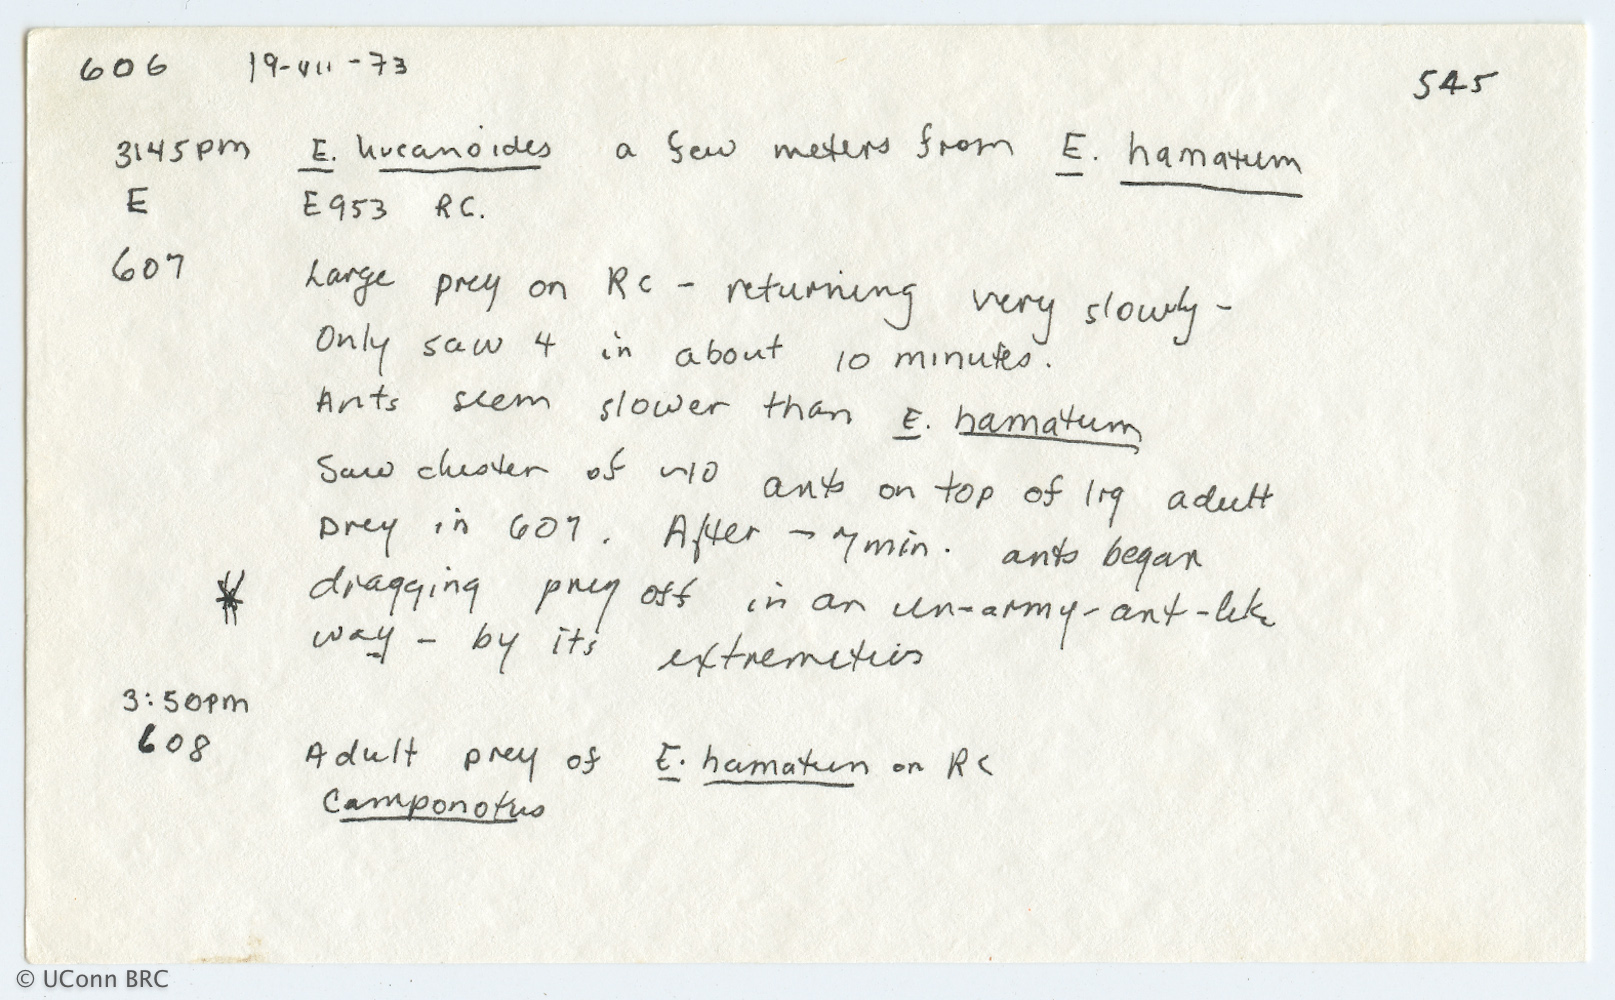 606 19-VII-73 545
3:45pm E. lucanoides a few meters from E. hamatum
E E953 RC.
607 Large prey on RC - returning very slowly -
Only saw 4 in about 10 minutes.
Ants seem slower than E. hamatum
Saw cluster of ~10 ants on top of lrg adult
prey in 607. After ~ 7 min. ants began
* dragging prey off in an un-army-ant-like
way - by its extremeties
3:50pm
608 Adult prey of E. hamatum on RC
Camponotus
© UConn BRC